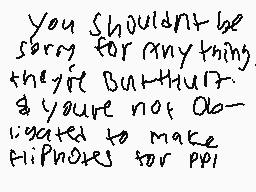 you shouldnt be
sorry for anything.
they're Burthurt.
& youre not ob-
ligated to make
flipnotes for ppl